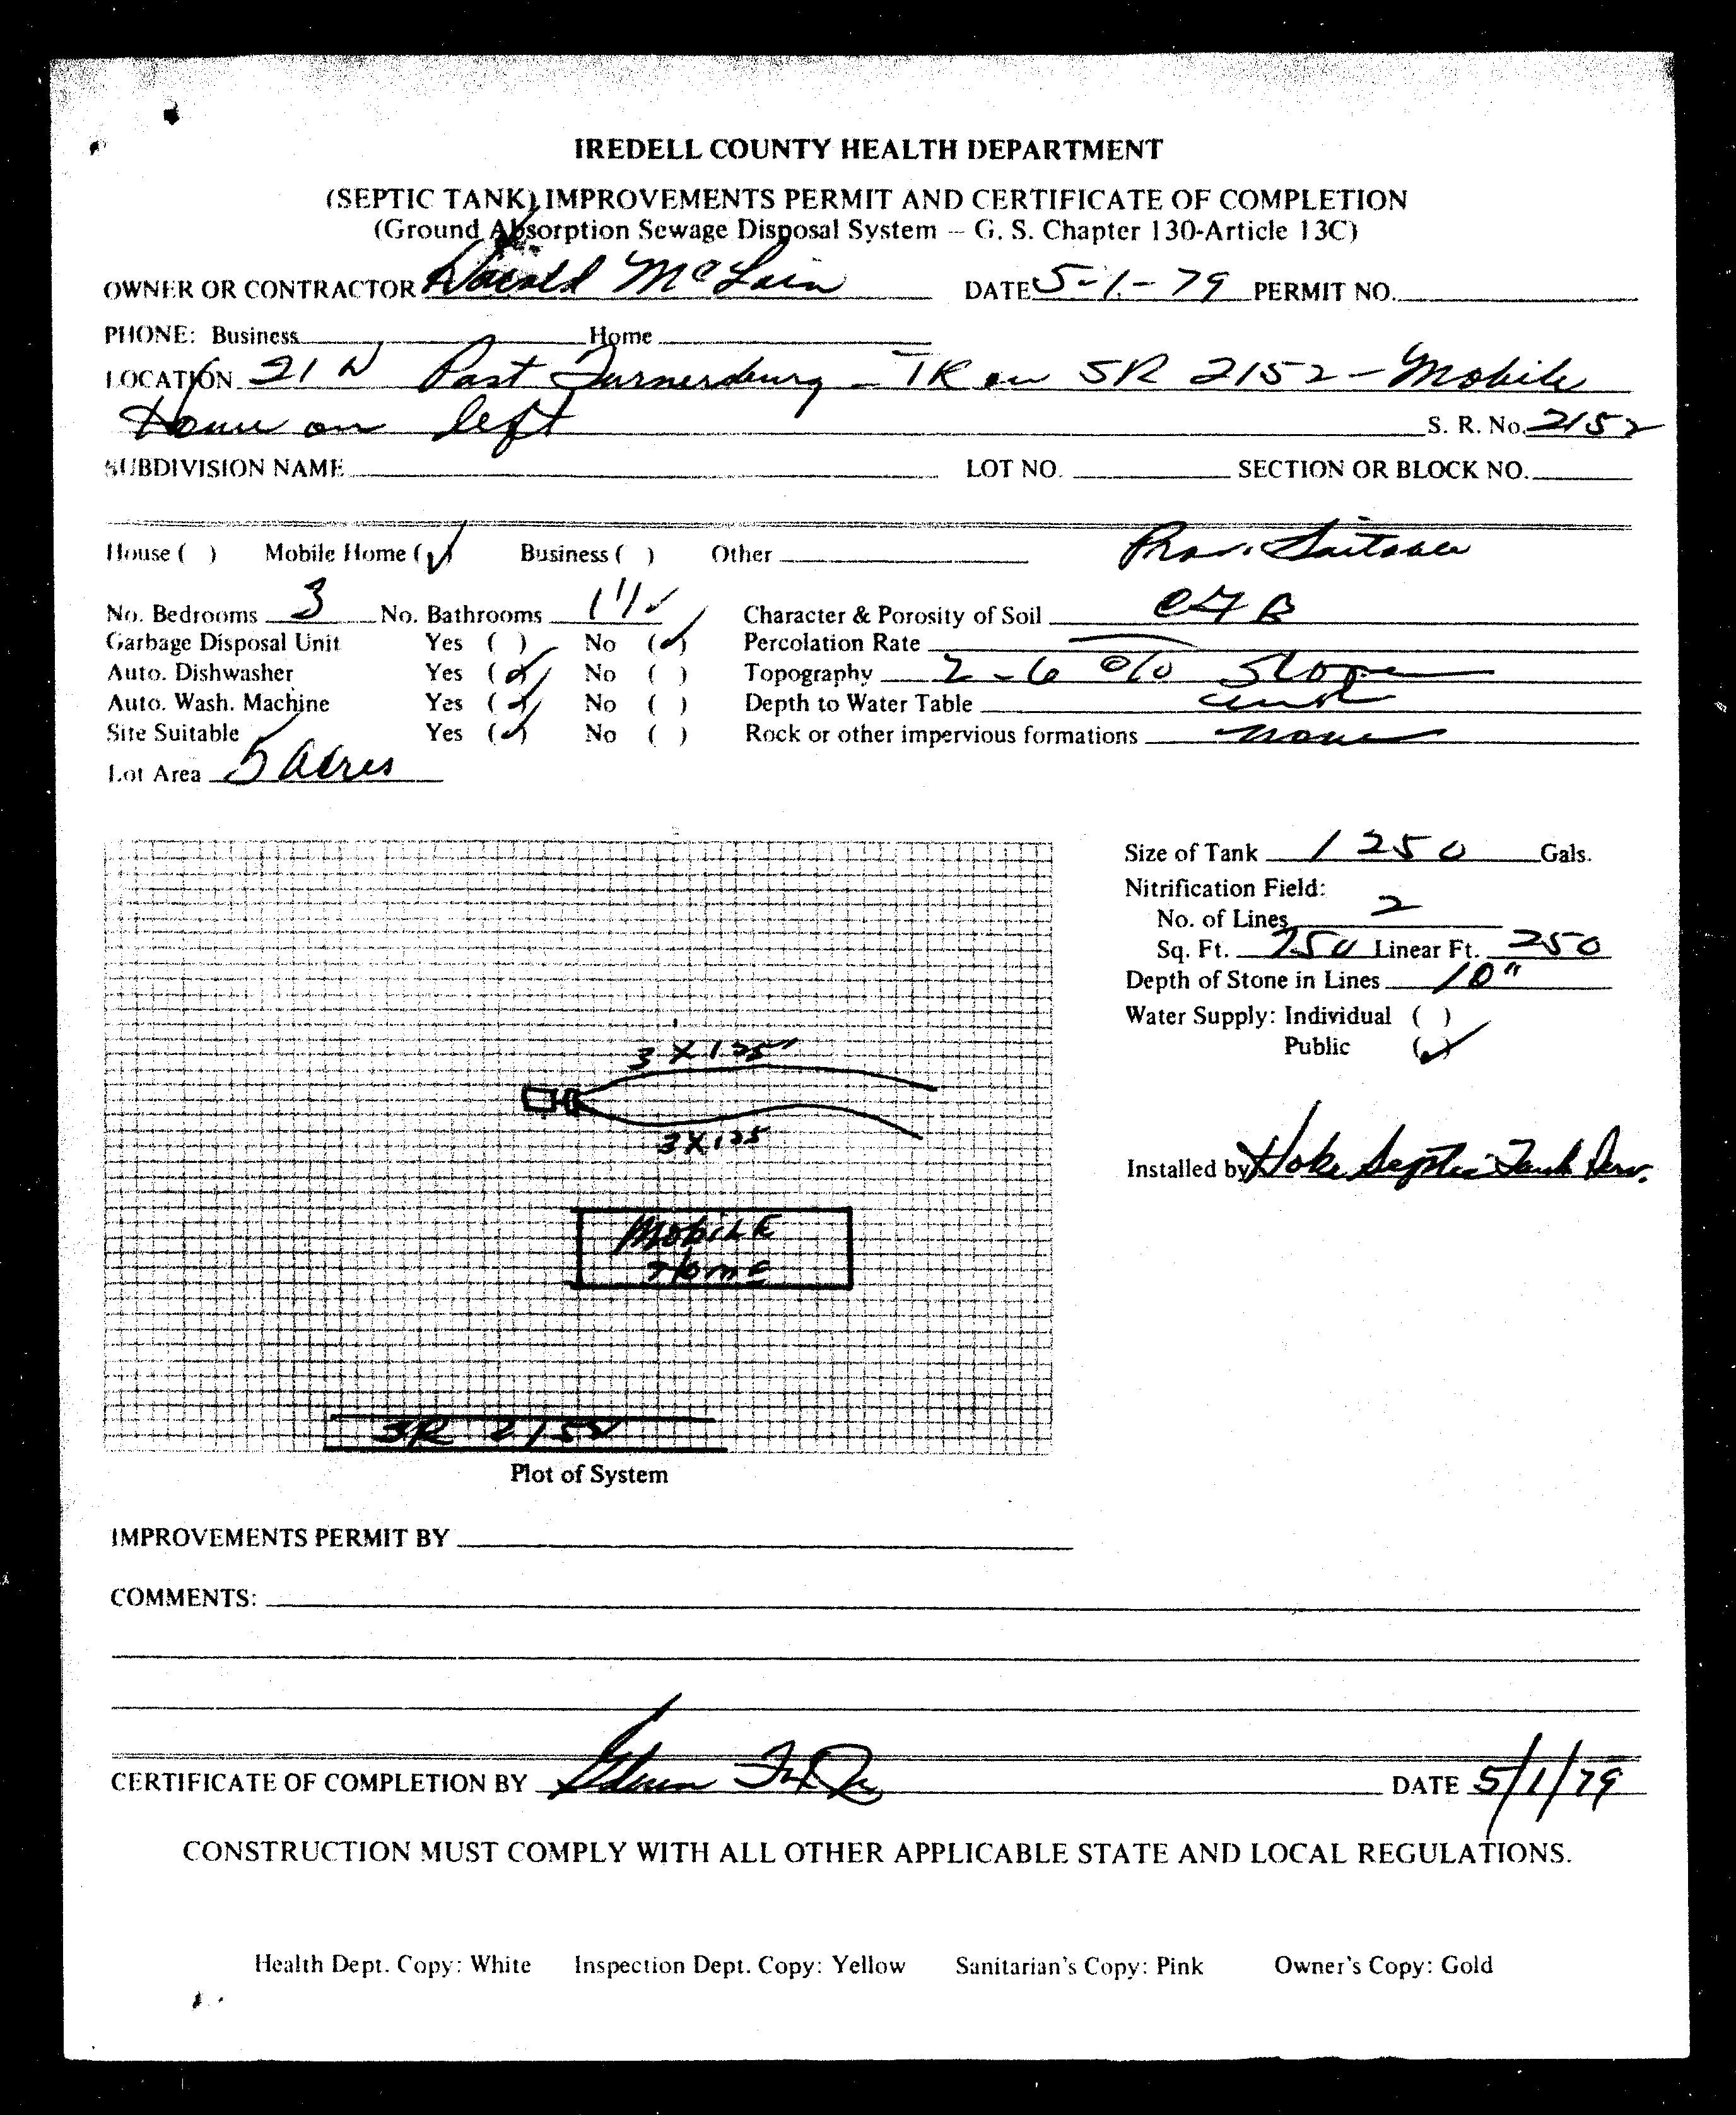 IREDELL COUNTY HEALTH DEPARTMENT
(SEPTIC TANK) IMPROVEMENTS PERMIT AND CERTIFICATE OF COMPLETION
(Ground Absorption Sewage Disposal System – G. S. Chapter 130-Article 13C)
OWNER OR CONTRACTOR McLain DATE 5-1-79 PERMIT NO.
PHONE: Business Home
LOCATION 21 N Past Turnersburg - TR on SR 2152 - Mobile
Home on left S. R. No. 2152
SUBDIVISION NAME LOT NO. SECTION OR BLOCK NO.
House ( ) Mobile Home (✓) Business ( ) Other Prov. Suitable
No. Bedrooms 3 No. Bathrooms Character & Porosity of Soil
Garbage Disposal Unit Yes ( ) No (✓) Percolation Rate
Auto. Dishwasher Yes (✓) No ( ) Topography 2-6 % Slope
Auto. Wash. Machine Yes (✓) No ( ) Depth to Water Table
Site Suitable Yes (✓) No ( ) Rock or other impervious formations none
Lot Area 5 acres
Size of Tank 1250 Gals.
Nitrification Field:
No. of Lines 2
Sq. Ft. 750 Linear Ft. 250
Depth of Stone in Lines 10"
Water Supply: Individual ( )
Public (✓)
3 X 125'
3 X 125
Installed by Hoke Septic Tank Serv.
Mobile
Home
SR 2152
Plot of System
IMPROVEMENTS PERMIT BY
COMMENTS:
CERTIFICATE OF COMPLETION BY DATE 5/1/79
CONSTRUCTION MUST COMPLY WITH ALL OTHER APPLICABLE STATE AND LOCAL REGULATIONS.
Health Dept. Copy: White Inspection Dept. Copy: Yellow Sanitarian's Copy: Pink Owner's Copy: Gold